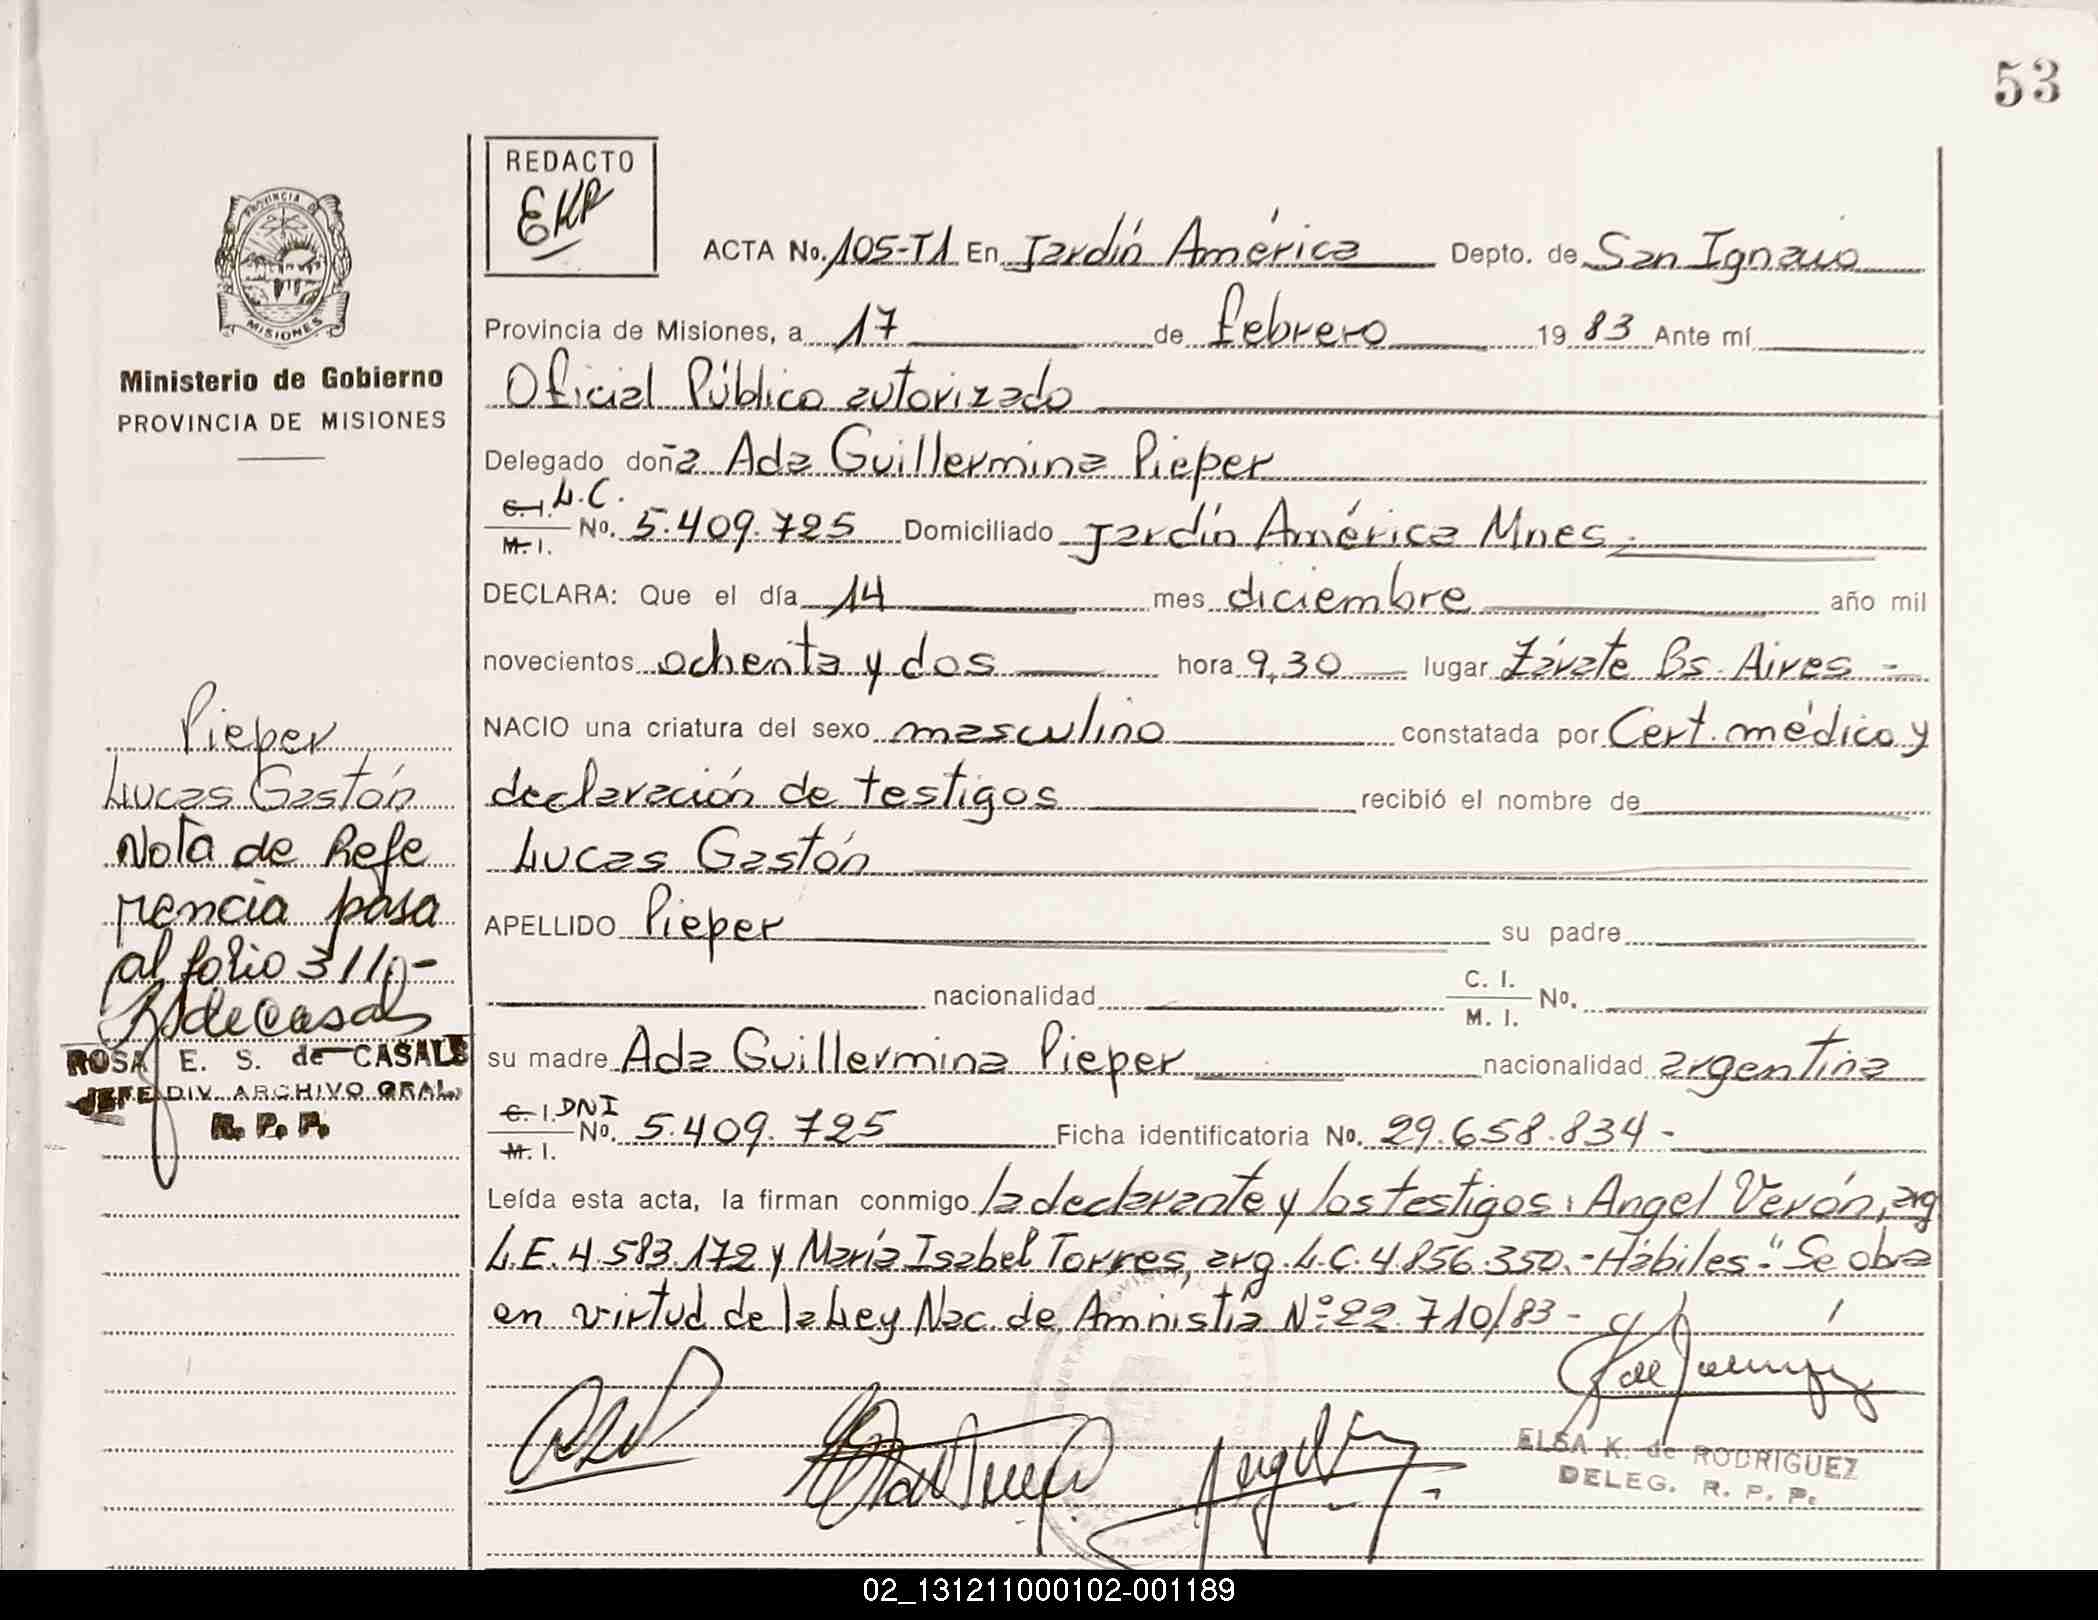 53
REDACTO
EKR
PROVINCIA DE
MISIONES
Ministerio de Gobierno
PROVINCIA DE MISIONES
ACTA No. 105-T1 En Jardín América Depto. de San Ignacio
Provincia de Misiones, a 17 de febrero 1983 Ante mí
Oficial Público autorizado
Delegado doña Ada Guillermina Pieper
C. I. L.C.
M. I. No. 5.409.725 Domiciliado Jardín América Mnes.
DECLARA: Que el día 14 mes diciembre año mil
novecientos ochenta y dos hora 9,30 lugar Zárate Bs. Aires -
NACIO una criatura del sexo masculino constatada por Cert. médico y
declaración de testigos recibió el nombre de
Lucas Gastón
APELLIDO Pieper su padre
nacionalidad C. I. M. I. No.
su madre Ada Guillermina Pieper nacionalidad argentina
C. I. DNI
M. I. No. 5.409.725 Ficha identificatoria No. 29.658.834 -
Leída esta acta, la firman conmigo la declarante y los testigos: Angel Verón, arg
L.E. 4.583.172 y María Isabel Torres, arg. L.C. 4.856.350.- Hábiles.- "Se obra
en virtud de la Ley Nac. de Amnistía Nº 22.710/83 -
Pieper
Lucas Gastón
Nota de Refe
rencia pasa
al folio 311
RSdeCasals
ROSA E. S. de CASALS
JEFE DIV. ARCHIVO GRAL.
R. P. P.
ELSA K. de RODRIGUEZ
DELEG. R. P. P.
02_131211000102-001189